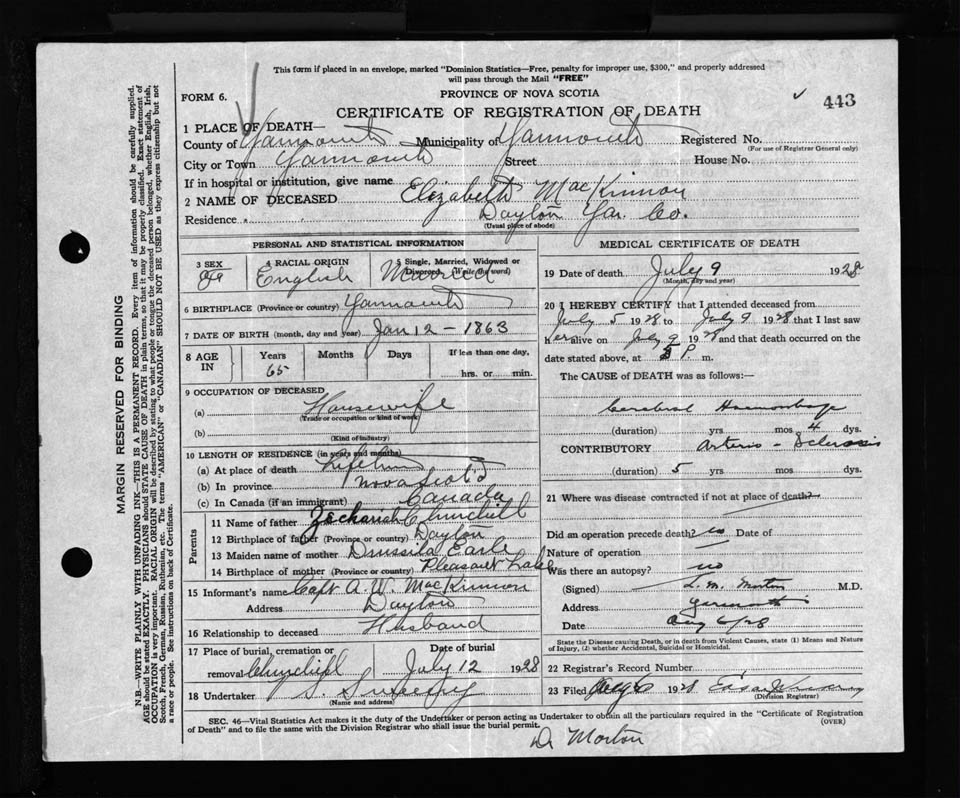 This form if placed in an envelope, marked "Dominion Statistics—Free, penalty for improper use, $300," and properly addressed
will pass through the Mail "FREE"
PROVINCE OF NOVA SCOTIA
FORM 6.
443
CERTIFICATE OF REGISTRATION OF DEATH
1 PLACE OF DEATH—
County of Yarmouth Municipality of Yarmouth Registered No.
(For use of Registrar General only)
City or Town Yarmouth Street House No.
If in hospital or institution, give name
2 NAME OF DECEASED Elizabeth MacKinnon
Residence Dayton Yar. Co.
(Usual place of abode)
PERSONAL AND STATISTICAL INFORMATION
3 SEX 4 RACIAL ORIGIN English 5 Single, Married, Widowed or Divorced (Write the word) Married
6 BIRTHPLACE (Province or country) Yarmouth
7 DATE OF BIRTH (month, day and year) Jan 12 - 1863
8 AGE IN Years Months Days If less than one day,
65 hrs. or min.
9 OCCUPATION OF DECEASED
(a) Housewife
(Trade or occupation or kind of work)
(b)
(Kind of industry)
10 LENGTH OF RESIDENCE (in years and months)
(a) At place of death Lifetime
(b) In province Nova Scotia
(c) In Canada (if an immigrant) Canada
Parents
11 Name of father Zechariah Churchill
12 Birthplace of father (Province or country) Dayton
13 Maiden name of mother Drussila Earle
14 Birthplace of mother (Province or country) Pleasant Lake
15 Informant's name Capt A. W. MacKinnon
Address Dayton
16 Relationship to deceased Husband
17 Place of burial, cremation or removal Churchill Date of burial July 12 1928
18 Undertaker
(Name and address)
MEDICAL CERTIFICATE OF DEATH
19 Date of death July 9 1928
(Month, day and year)
20 I HEREBY CERTIFY that I attended deceased from
July 5 1928 to July 9 1928 that I last saw
her alive on July 9 1928 and that death occurred on the
date stated above, at P. m.
The CAUSE OF DEATH was as follows:—
Cerebral Haemorrhage
(duration) yrs mos 4 dys.
CONTRIBUTORY Arterio-Sclerosis
(duration) 5 yrs. mos. dys.
21 Where was disease contracted if not at place of death?
Did an operation precede death? no Date of
Nature of operation
Was there an autopsy? no
(Signed) L. M. Morton M.D.
Address Yarmouth
Date Aug 6/28
State the Disease causing Death, or in death from Violent Causes, state (1) Means and Nature
of Injury, (2) whether Accidental, Suicidal or Homicidal.
22 Registrar's Record Number
23 Filed Aug 6 1928
(Division Registrar)
SEC. 46—Vital Statistics Act makes it the duty of the Undertaker or person acting as Undertaker to obtain all the particulars required in the "Certificate of Registration
of Death" and to file the same with the Division Registrar who shall issue the burial permit.
(OVER)
Dr Morton
MARGIN RESERVED FOR BINDING
N.B.—WRITE PLAINLY WITH UNFADING INK—THIS IS A PERMANENT RECORD. Every item of information should be carefully supplied.
AGE should be stated EXACTLY. PHYSICIANS should STATE CAUSE OF DEATH in plain terms, so that it may be properly classified. Exact statement of
OCCUPATION is very important. RACIAL ORIGIN will be described by stating to what people or tongue the deceased person belonged, whether English, Irish,
Scotch, French, German, Russian, Ruthenian, etc. The terms "AMERICAN" or "CANADIAN" SHOULD NOT BE USED as they express citizenship but not
a race or people. See instructions on back of Certificate.